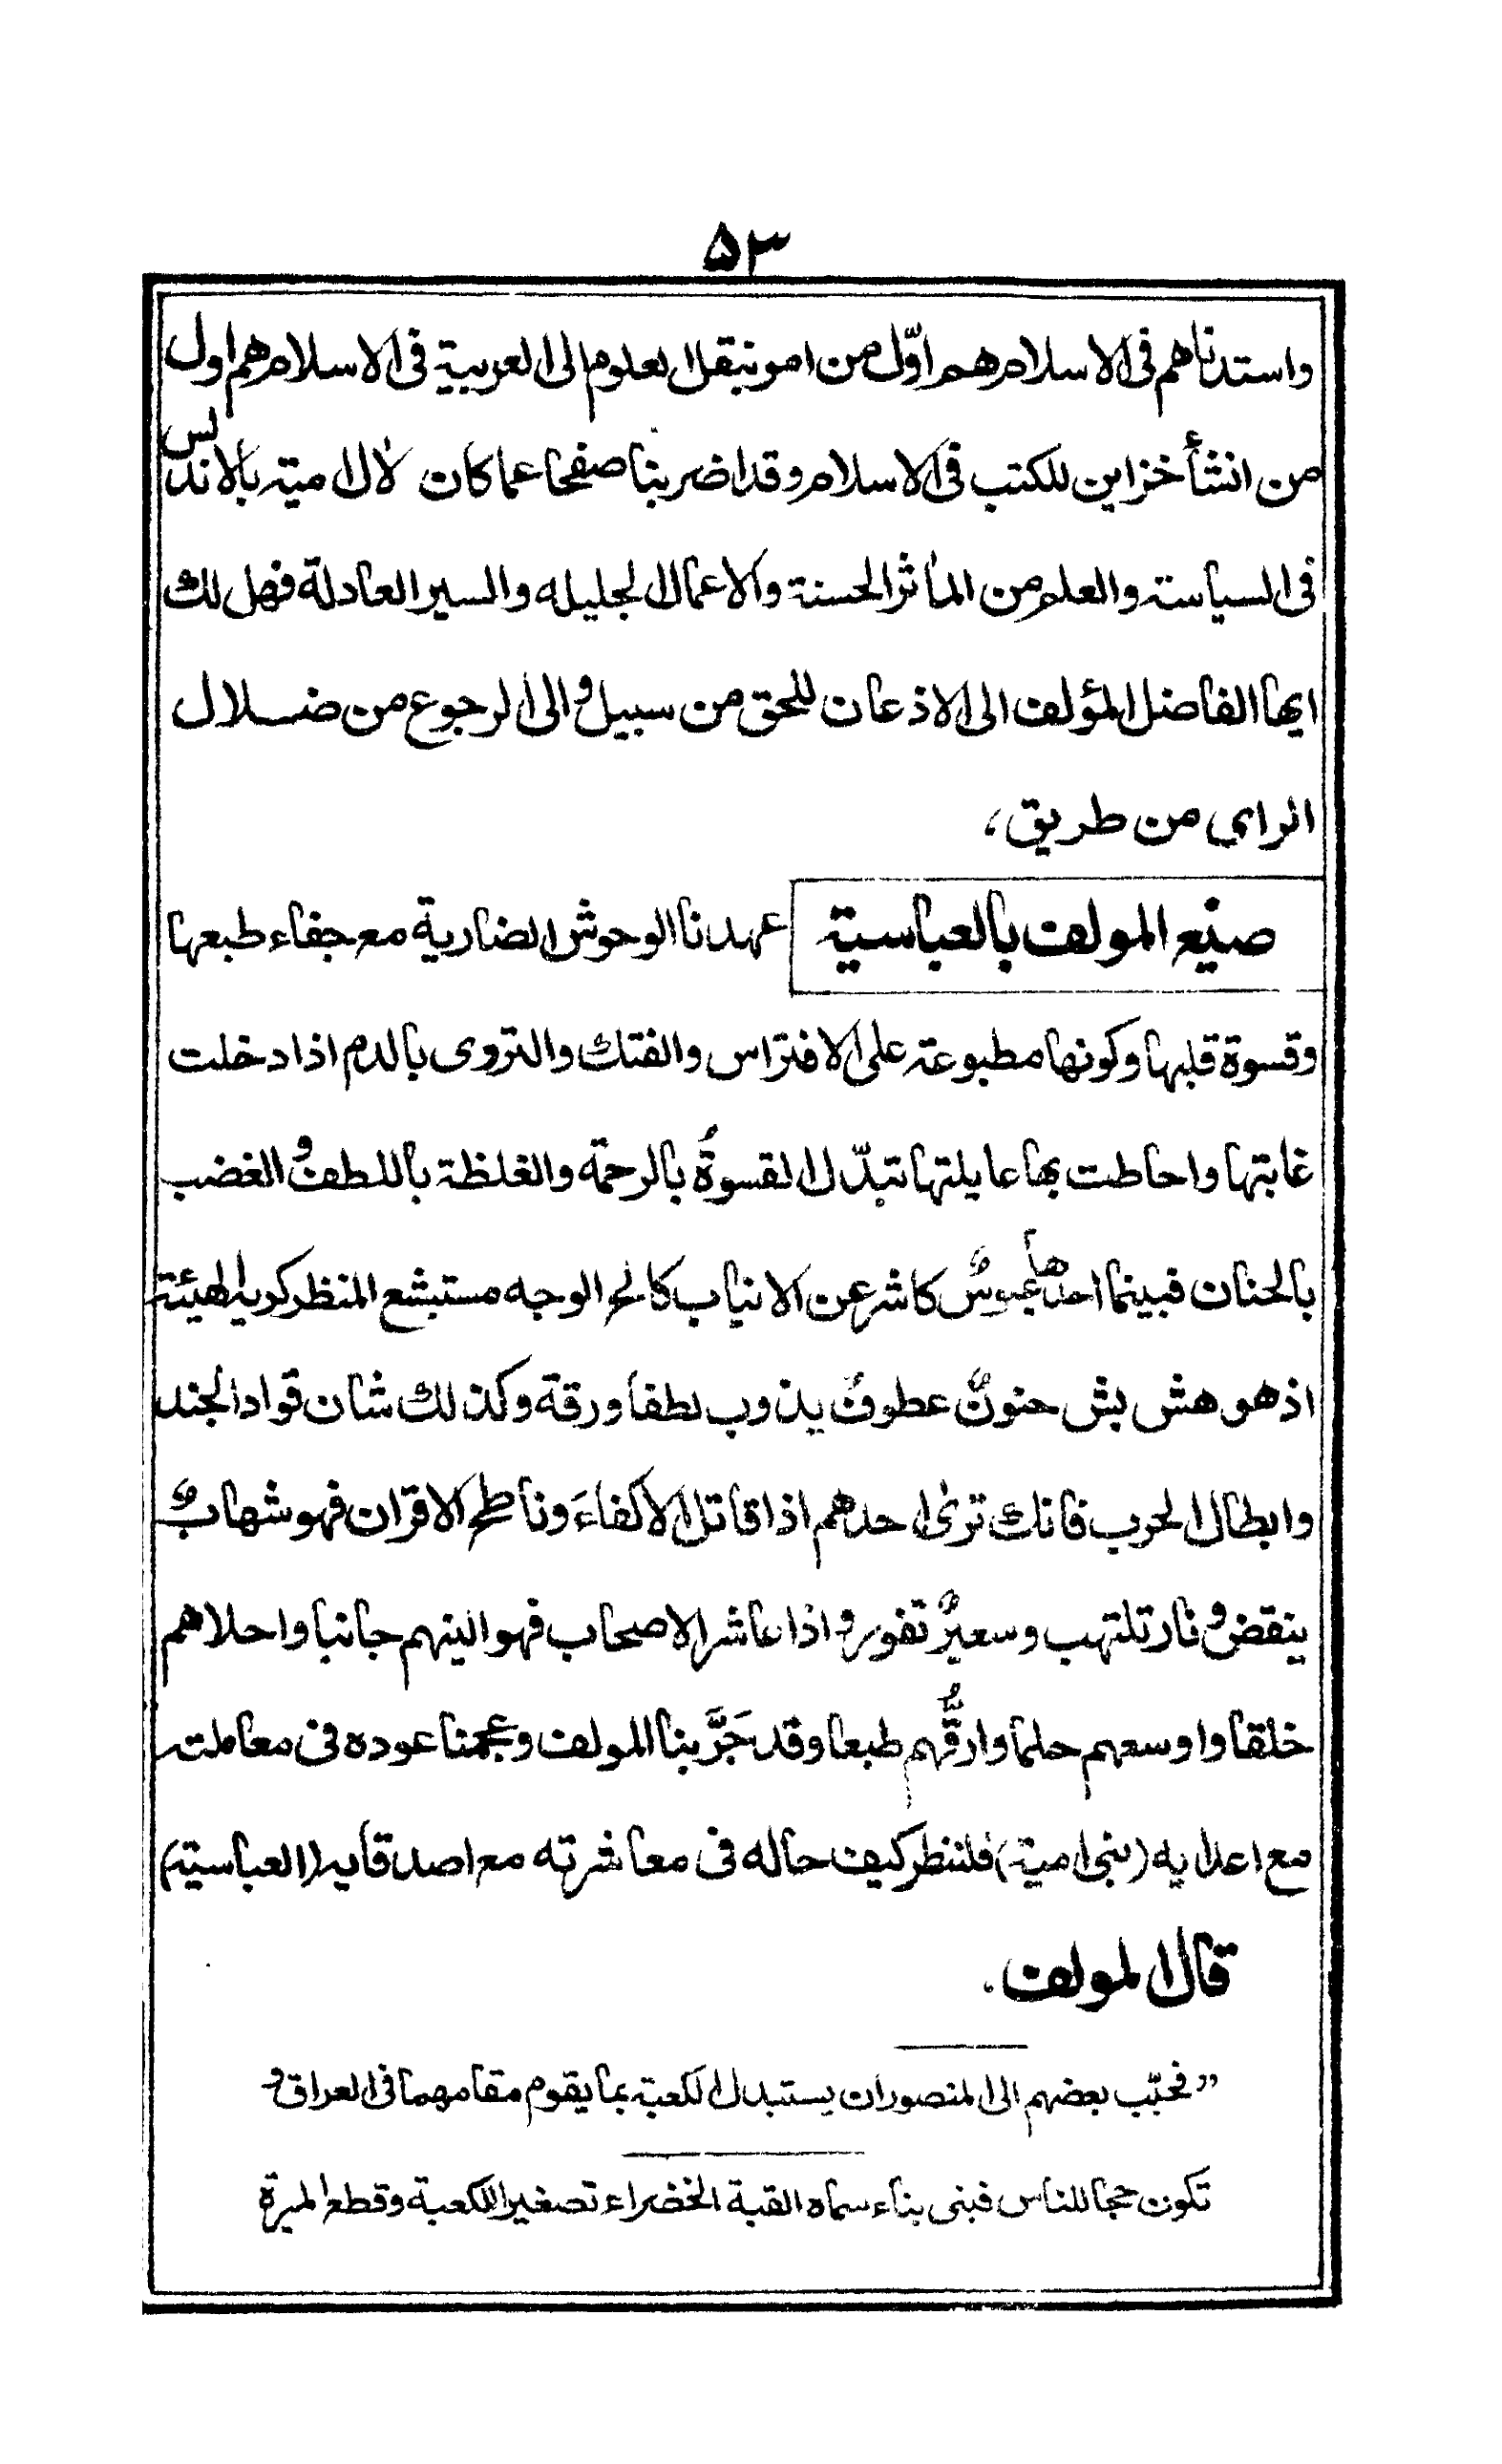 ۵۳
واستدناهم فی الاسلام هم اوّل من امر بنقل العلوم الی العربیة فی الاسلام هم اول
من انشأ خزاین للکتب فی الاسلام وقد اضربنا صفحا عما کان لاٰل امیة بالاندلس
فی السیاسة والعلم من الماٰثر الحسنة والاعمال الجلیله والسیر العادلة فهل لك
ایها الفاضل المؤلف الی الاذعان للحق من سبیل والی الرجوع من ضلال
الرای من طریق،
صنیع المولف بالعباسیة عهدنا الوحوش الضاریة مع جفاء طبعها
وقسوة قلبها وکونها مطبوعة علی الافتراس والفتك والتروی بالدم اذا دخلت
غابتها واحاطت بها عایلتها تبدّل القسوةُ بالرحمة والغلظة باللطف والغضب
بالحنان فبینما احدها عبوسٌ کاشر عن الانیاب کالح الوجه مستبشع المنظر کریه الهیئة
اذ هو هش بش حنونٌ عطوفٌ یذوب لطفا ورقة وکذلك شان قواد الجند
وابطال الحرب فانك تریٰ احدهم اذا قاتل الاکفاءَ وناطح الاقران فهو شهابٌ
ینقض ونار تلتهب وسعیرٌ تفور واذا عاشر الاصحاب فهو الینهم جانبا واحلاهم
خلقا واوسعهم حلما وارقُّهم طبعا وقد جَرَّبنا المولف وعجمنا عوده فی معاملته
مع اعدایه (بنی امیة) فلننظر کیف حاله فی معاشرته مع اصدقایه (العباسیة)
قال المولف.
”فحبّب بعضهم الی المنصور ان یستبدل الکعبة بما یقوم مقامهما فی العراق و
تکون حجا للناس فبنی بناء سماه القبة الخضراء تصغیرا للکعبة وقطع المیرة